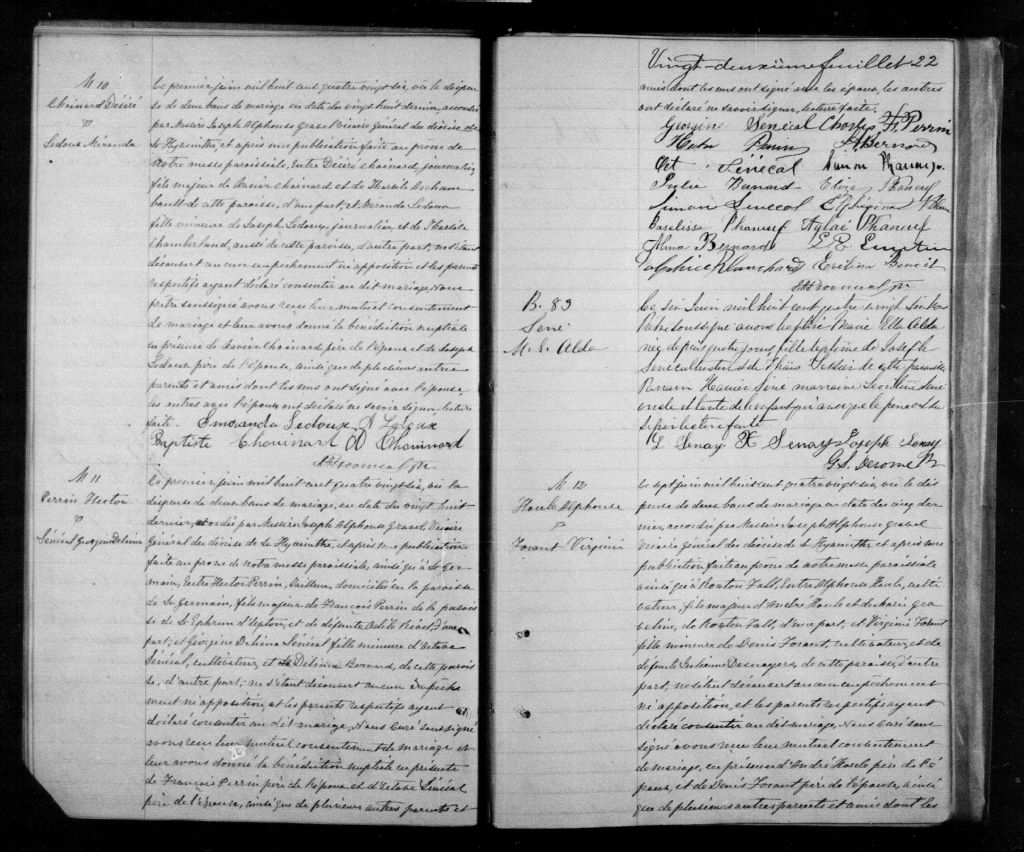 M 10
Choinard Désiré
&
Ledoux Miranda
Le premier juin mil huit cent quatre vingt six, vu la dispen
se de deux bans de mariage en date du vingt huit dernier, accordée
par Messire Joseph Alphonse Gravel Vicaire Général du diocèse de
St Hyacinthe et après une publication faite au prone de
notre messe paroissiale, Entre Désiré Choinard, journalier,
fils majeur de Xavier Choinard et de Tharsile Archam
bault de cette paroisse, d'une part, et Miranda Ledoux
fille mineure de Joseph Ledoux, journalier et de Tharsile
Chamberland, aussi de cette paroisse, d'autre part, ne s'étant
découvert aucun empêchement ni opposition et les parents
respectifs ayant déclaré consentir au dit mariage, Nous
prêtre soussigné avons reçu leur mutuel consentement
de mariage et leur avons donné la bénédiction nuptiale
en présence de Xavier Choinard père de l'époux et de Joseph
Ledoux père de l'épouse, ainsi que de plusieurs autres
parents et amis dont les uns ont signé avec l'épouse,
les autres avec l'époux ont déclaré ne savoir signer, lecture
faite. Emeranda Ledoux
Baptiste Chouinard D Chouinard
M 11
Perrin Hector
&
Sénécal Georgine Delima
Le premier juin mil huit cent quatre vingt six, vu la
dispense de deux bans de mariage, en date du vingt huit
dernier, accordée par Messire Joseph Alphonse Gravel, Vicaire
Général du diocèse de St Hyacinthe, et après une publication
faite au prone de notre messe paroissiale, ainsi qu'à St Ger
main, Entre Hector Perrin, domicilié en la paroisse
de St Germain, fils majeur de François Perrin de la parois
se de St Ephrem d'Upton, et de défunte Adèle d'une
part, et Géorgine Delima Sénécal fille mineure d'Octave
Sénécal, cultivateur, et de Delima Bernard, de cette parois
se, d'autre part; ne s'étant découvert aucun empêche
ment ni opposition, et les parents respectifs ayant
déclaré consentir au dit mariage, Nous Curé soussigné
avons reçu leur mutuel consentement de mariage et
leur avons donné la bénédiction nuptiale en présence
de François Perrin père de l'époux et d'Octave Sénécal
père de l'épouse, ainsi que de plusieurs autres parents et
Vingt-deuxième feuillet 22
amis dont les uns ont signé avec les époux, les autres
ont déclaré ne savoir signer, lecture faite.
Georgine Sénécal Charles F. Perrin
Perrin Bernard
Oct Sénécal Simon Phaneuf
Julie Bernard Eliza Phaneuf
Simon Senecal
Phaneuf Aglaé Phaneuf
Alma Bernard
Blanchard Evelina Benoit
B. 89
Séné
M. E. Alda
Ce six Juin mil huit cent quatre vingt six Nous
Prêtre soussigné avons baptisé Marie Ella Alda
née depuis quatre jours, fille légitime de Joseph
Séné cultivateur et de Thaïs Tessier de cette paroisse
Parrain Séné marraine Léontine Séné
oncle et tante de l'enfant qui ainsi que le père ont
signé lecture faite
L Senay X Senay Joseph Senay
G. S. Derome Ptr
M 12
Houle Alphonse
&
Forant Virginie
Le sept juin mil huit cent quatre vingt six, vu la dis
pense de deux bans de mariage en date du cinq der
nier, accordée par Messire Joseph Alphonse Gravel
Vicaire général du diocèse de St Hyacinthe, et après une
publication faite au prone de notre messe paroissiale
ainsi qu'à Roxton Fall, Entre Alphonse Houle, culti
vateur, fils majeur d'André Houle et de Marie Gra
veline, de Roxton Fall, d'une part, et Virginie Forant
fille mineure de Denis Forant, cultivateur, et de
défunte Desnoyers, de cette paroisse, d'autre
part, ne s'étant découvert aucun empêchement
ni opposition, et les parents respectifs ayant
déclaré consentir au dit mariage, Nous Curé sous
signé avons reçu leur mutuel consentement
de mariage, en présence d'André Houle père de l'é
poux, et de Denis Forant père de l'épouse, ainsi
que de plusieurs autres parents et amis dont les